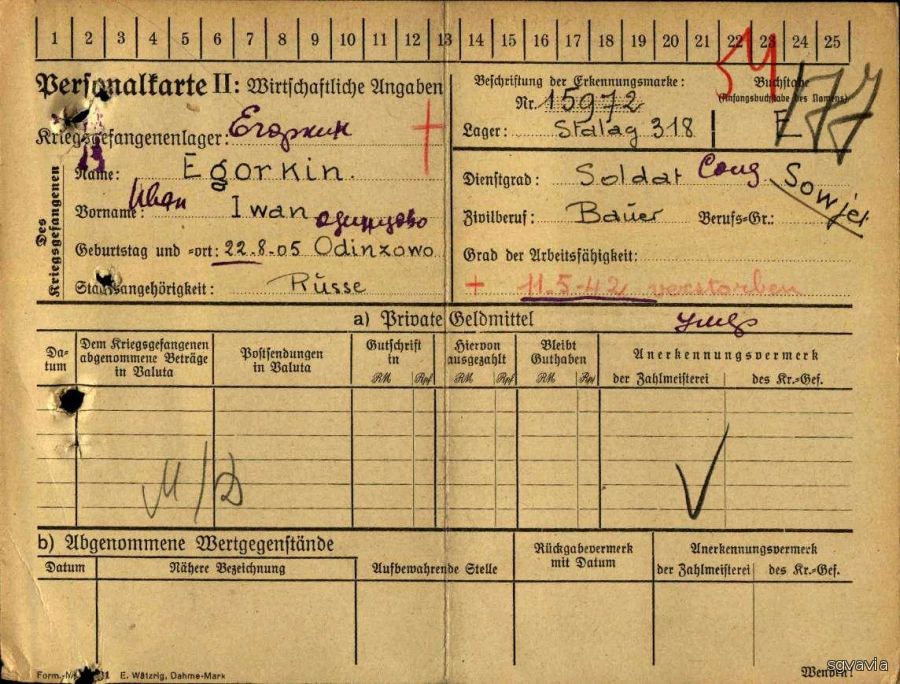 1 2 3 4 5 6 7 8 9 10 11 12 13 14 15 16 17 18 19 20 21 22 23 24 25
Personalkarte II: Wirtschaftliche Angaben
Beschriftung der Erkennungsmarke:
Nr. 15972
Buchstabe
(Anfangsbuchstabe des Namens)
Kriegsgefangenenlager: Егоркин
Lager: Stalag 318
E
Des Kriegsgefangenen
Name: Egorkin.
Dienstgrad: Soldat Сол Sowjet
Иван
Vorname: Iwan Одинцово
Zivilberuf: Bauer Berufs-Gr.:
Geburtstag und -ort: 22.8.05 Odinzowo
Grad der Arbeitsfähigkeit:
Staatsangehörigkeit: Russe
+ 11.5.42 verstorben
a) Private Geldmittel
Умер
Datum
Dem Kriegsgefangenen abgenommene Beträge in Valuta
Postsendungen in Valuta
Gutschrift in
RM Rpf
Hiervon ausgezahlt
RM Rpf
Bleibt Guthaben
RM Rpf
Anerkennungsvermerk
der Zahlmeisterei des Kr.-Gef.
b) Abgenommene Wertgegenstände
Datum
Nähere Bezeichnung
Aufbewahrende Stelle
Rückgabevermerk mit Datum
Anerkennungsvermerk
der Zahlmeisterei des Kr.-Gef.
E. Wätzrig, Dahme-Mark
Wenden!
sqvavia